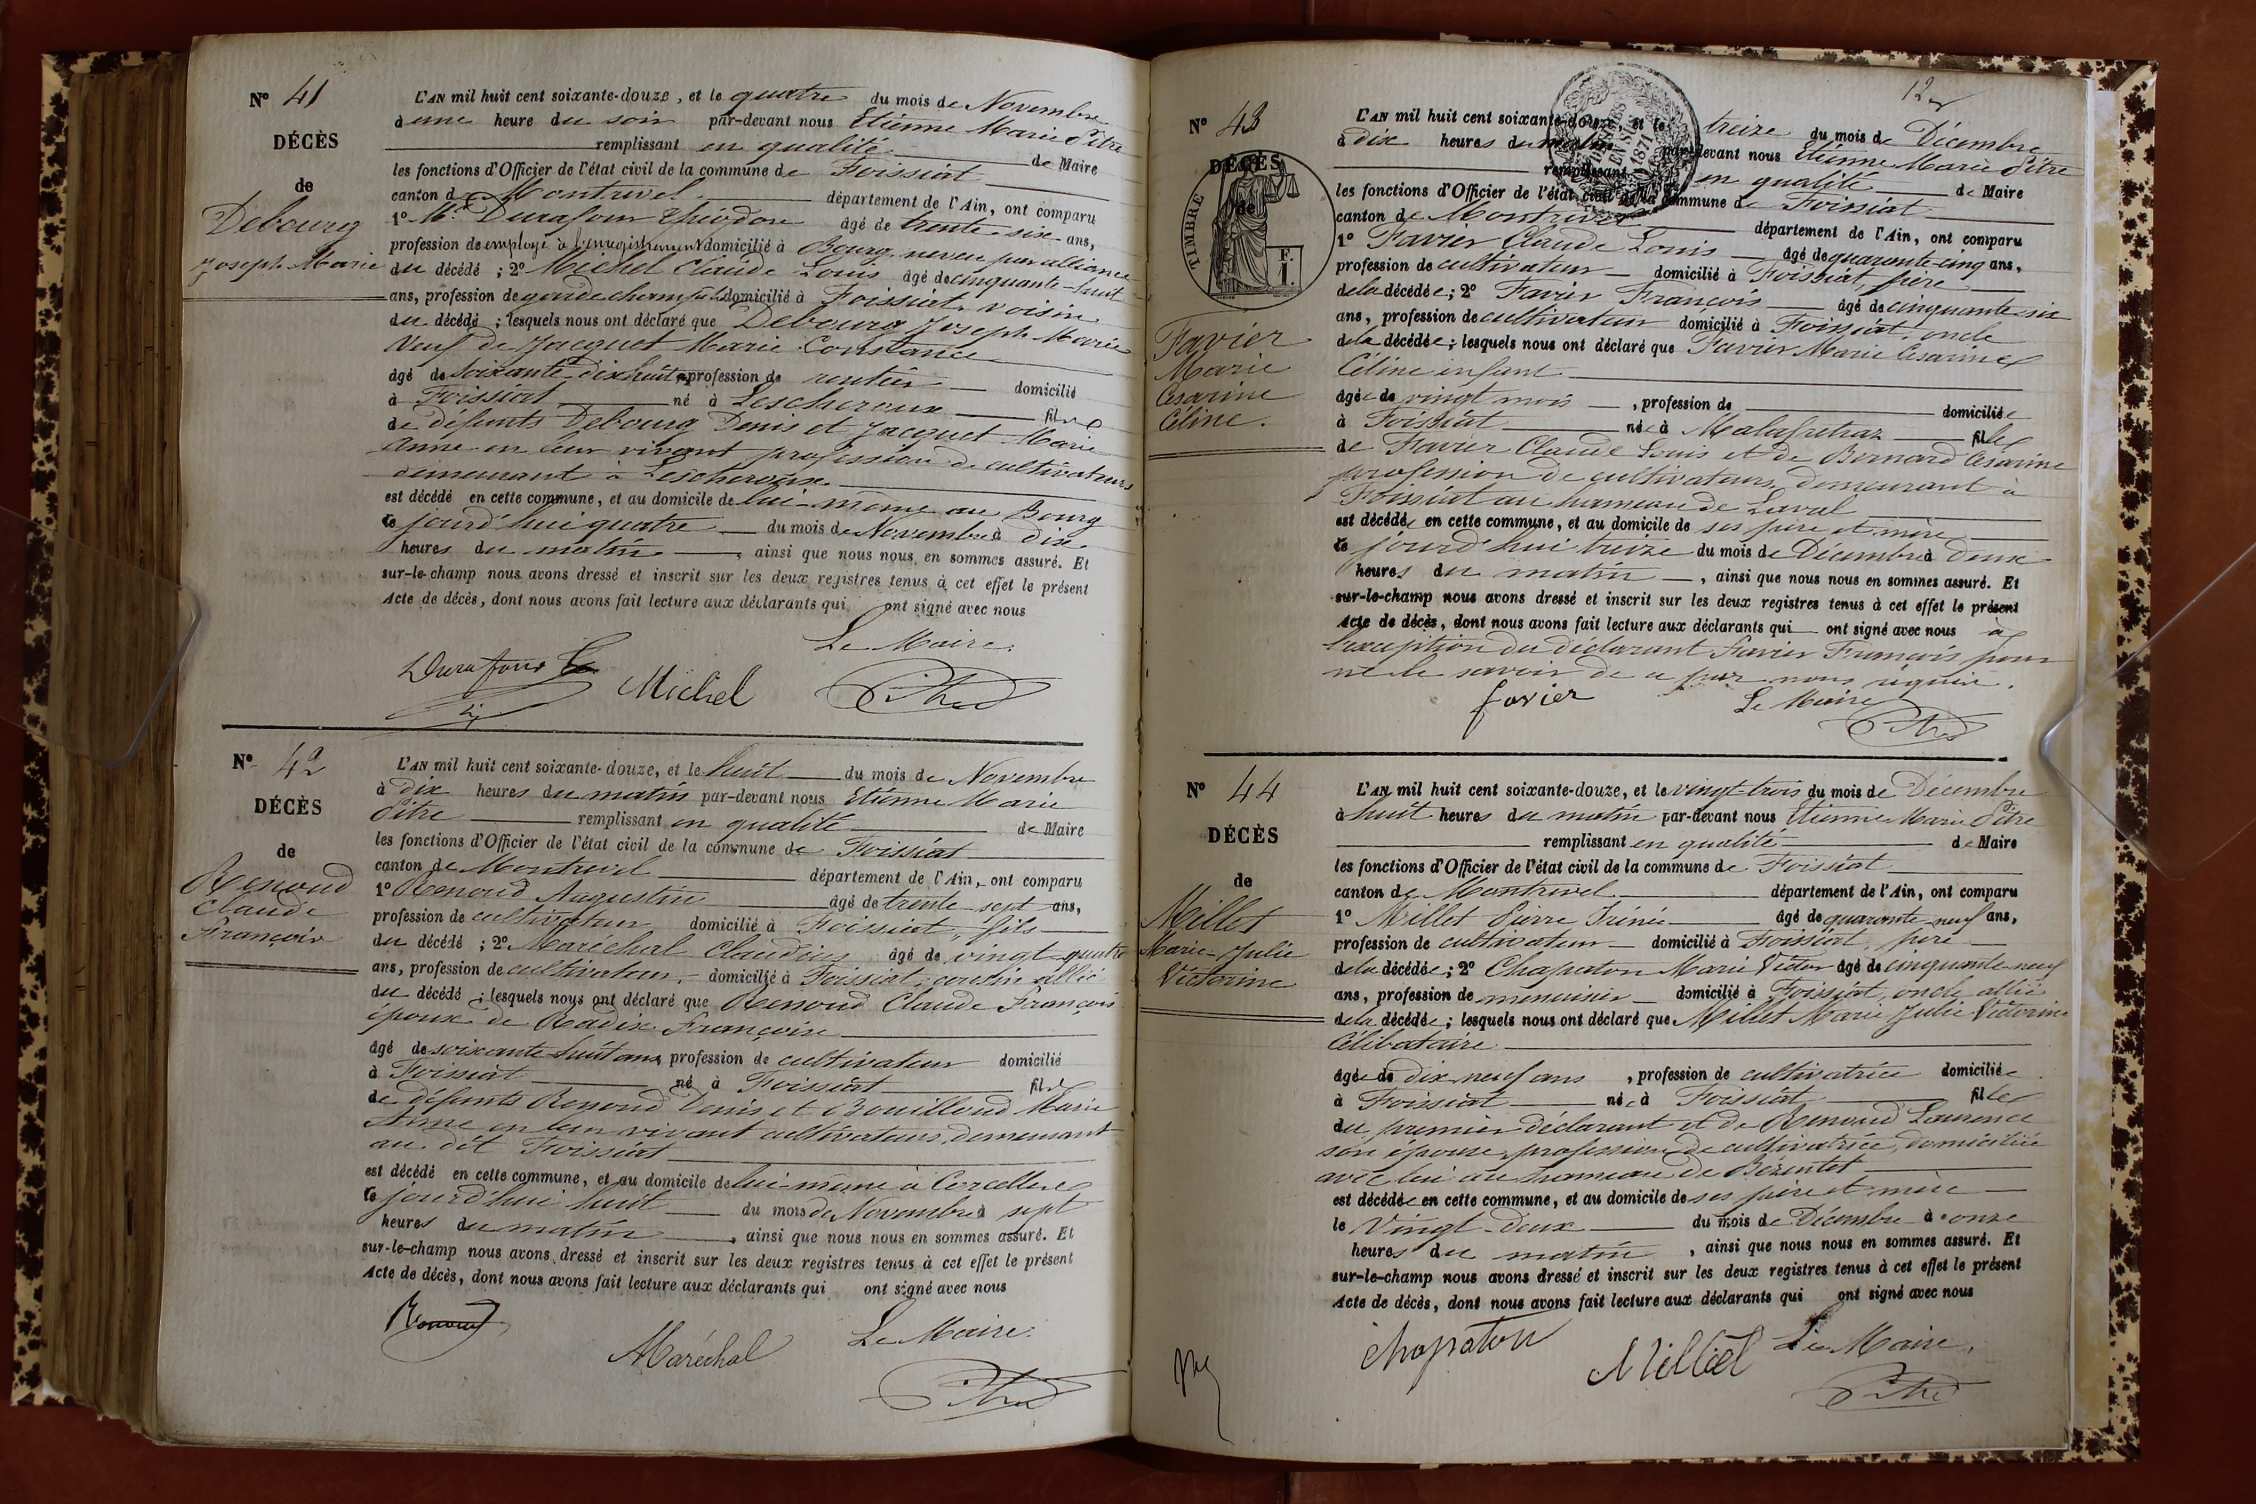 N° 41
DÉCÈS
de
Debourg
Joseph Marie
L'AN mil huit cent soixante-douze, et le quatre du mois de Novembre
à une heure du soir par-devant nous Etienne Marie Pitre
remplissant en qualité de Maire
les fonctions d'Officier de l'état civil de la commune de Foissiat
canton de Montrevel département de l'Ain, ont comparu
1° Mr. Durafour âgé de trente-six ans,
profession de employé à l'enregistrement domicilié à Bourg, neveu par alliance
du décédé ; 2° Michel Claude Louis âgé de cinquante-huit
ans, profession de garde champêtre domicilié à Foissiat, voisin
du décédé ; lesquels nous ont déclaré que Debourg Joseph Marie
Veuf de Jacquet Marie Constance
âgé de soixante-dix huit ans, profession de rentier domicilié
à Foissiat né à Lescheroux fils
de défunts Debourg Denis et Jacquet Marie
Anne en leur vivant profession de cultivateurs
demeurant à Lescheroux
est décédé en cette commune, et au domicile de lui-même au Bourg
le jourd'hui quatre du mois de Novembre à dix
heures du matin, ainsi que nous nous en sommes assuré. Et
sur-le-champ nous avons dressé et inscrit sur les deux registres tenus à cet effet le présent
Acte de décès, dont nous avons fait lecture aux déclarants qui ont signé avec nous
Le Maire.
Durafour Michel Pitre
N° 42
DÉCÈS
de
Renoud
Claude
François
L'AN mil huit cent soixante-douze, et le huit du mois de Novembre
à dix heures du matin par-devant nous Etienne Marie
Pitre remplissant en qualité de Maire
les fonctions d'Officier de l'état civil de la commune de Foissiat
canton de Montrevel département de l'Ain, ont comparu
1° Renoud Augustin âgé de trente-sept ans,
profession de cultivateur domicilié à Foissiat, fils
du décédé ; 2° Maréchal Claudius âgé de vingt-quatre
ans, profession de cultivateur domicilié à Foissiat, cousin allié
du décédé ; lesquels nous ont déclaré que Renoud Claude François
époux de Radix Françoise
âgé de soixante-huit ans, profession de cultivateur domicilié
à Foissiat né à Foissiat fils
de défunts Renoud Denis et Bouilloud Marie
Anne en leur vivant cultivateurs, demeurant
au dit Foissiat
est décédé en cette commune, et au domicile de lui-même à Corcelles
le jourd'hui huit du mois de Novembre à sept
heures du matin, ainsi que nous nous en sommes assuré. Et
sur-le-champ nous avons dressé et inscrit sur les deux registres tenus à cet effet le présent
Acte de décès, dont nous avons fait lecture aux déclarants qui ont signé avec nous
Renoud Maréchal Le Maire.
Pitre
N° 43
DÉCÈS
de
TIMBRE
F.
1.
1871
Favier
Marie
Césarine
Céline.
L'AN mil huit cent soixante-douze, et le treize du mois de Décembre
à dix heures du matin par-devant nous Etienne Marie Pitre
remplissant en qualité de Maire
les fonctions d'Officier de l'état civil de la commune de Foissiat
canton de Montrevel département de l'Ain, ont comparu
1° Favier Claude Louis âgé de quarante-cinq ans,
profession de cultivateur domicilié à Foissiat, père
de la décédée ; 2° Favier François âgé de cinquante-six
ans, profession de cultivateur domicilié à Foissiat, oncle
de la décédée ; lesquels nous ont déclaré que Favier Marie Césarine
Céline enfant
âgée de vingt mois, profession de domiciliée
à Foissiat née à Malafretaz fille
de Favier Claude Louis et de Bernard Césarine
profession de cultivateurs, demeurant à
Foissiat au hameau de Laval
est décédée en cette commune, et au domicile de ses père et mère
le jourd'hui treize du mois de Décembre à deux
heures du matin, ainsi que nous nous en sommes assuré. Et
sur-le-champ nous avons dressé et inscrit sur les deux registres tenus à cet effet le présent
Acte de décès, dont nous avons fait lecture aux déclarants qui ont signé avec nous à
l'exception du déclarant Favier François pour
ne le savoir de ce par nous requis.
favier Le Maire
Pitre
N° 44
DÉCÈS
de
Millet
Marie-Julie
Victorine
L'AN mil huit cent soixante-douze, et le vingt-trois du mois de Décembre
à huit heures du matin par-devant nous Etienne Marie Pitre
remplissant en qualité de Maire
les fonctions d'Officier de l'état civil de la commune de Foissiat
canton de Montrevel département de l'Ain, ont comparu
1° Millet Pierre Irénée âgé de quarante-neuf ans,
profession de cultivateur domicilié à Foissiat, père
de la décédée ; 2° Chapaton Marie Victor âgé de cinquante-neuf
ans, profession de menuisier domicilié à Foissiat, oncle allié
de la décédée ; lesquels nous ont déclaré que Millet Marie Julie Victorine
Célibataire
âgée de dix-neuf ans, profession de cultivatrice domiciliée
à Foissiat née à Foissiat fille
du premier déclarant et de Renoud Laurence
son épouse, profession de cultivatrice, domiciliée
avec lui au hameau de Bézentet
est décédée en cette commune, et au domicile de ses père et mère
le Vingt-deux du mois de Décembre à onze
heures du matin, ainsi que nous nous en sommes assuré. Et
sur-le-champ nous avons dressé et inscrit sur les deux registres tenus à cet effet le présent
Acte de décès, dont nous avons fait lecture aux déclarants qui ont signé avec nous
chapaton Millet Le Maire,
Pitre